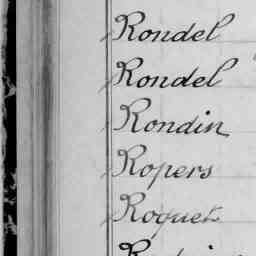 Rondel
Rondel
Rondin
Ropers
Roquet